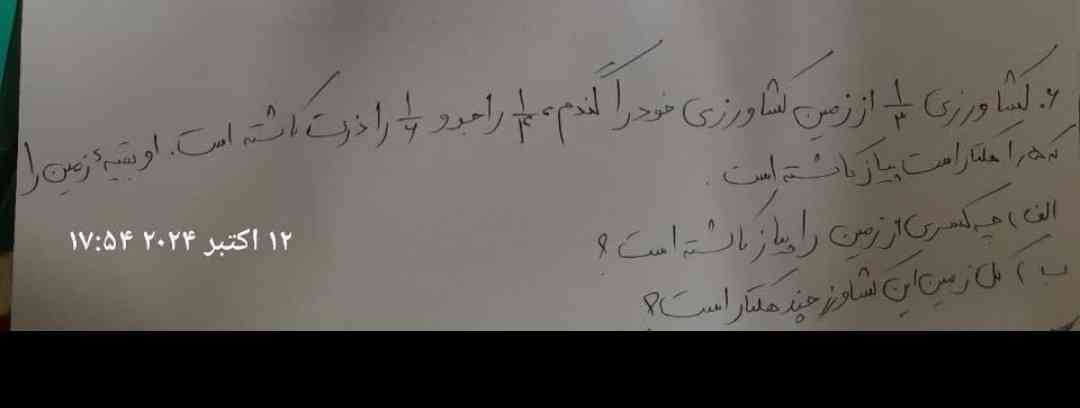 ۶. کشاورزی ۱/۳ از زمین کشاورزی خود را گندم، ۱/۴ را جو و ۱/۶ را ذرت کاشته است. او بقیهٔ زمین را
که ۱٫۵ هکتار است پیاز کاشته است.
الف) چه کسری از زمین را پیاز کاشته است؟
ب) کل زمین این کشاورز چند هکتار است؟
۱۲ اکتبر ۲۰۲۴ ۱۷:۵۴